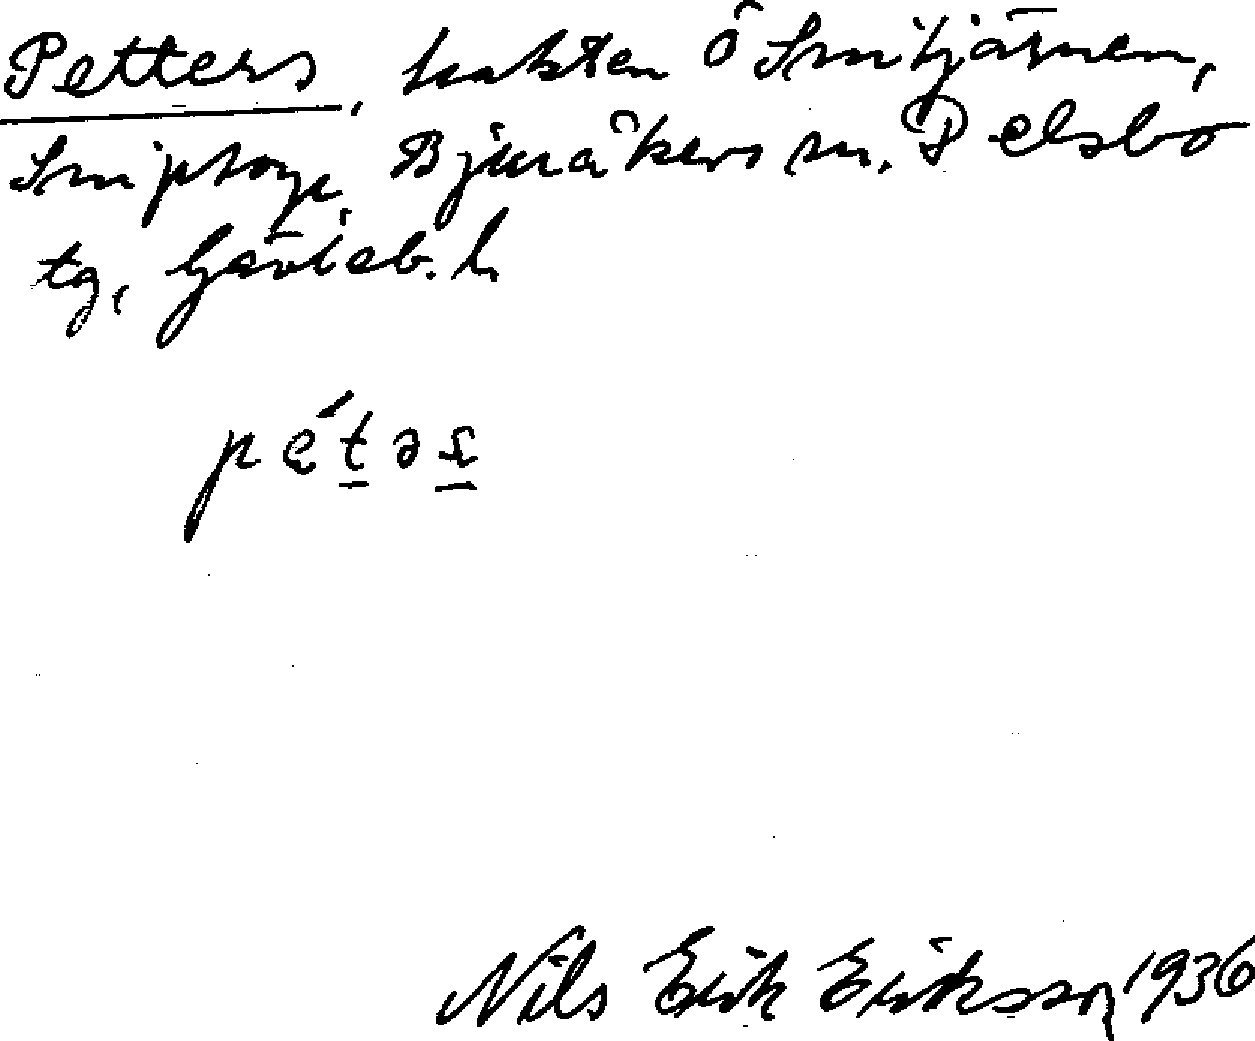 Petters, trakten Ö Smitjärnen,
Sniptorp, Bjuråkers sn. Delsbo
tg, Gävleb. l.
pę́təs
Nils Erik Eriksson 1936